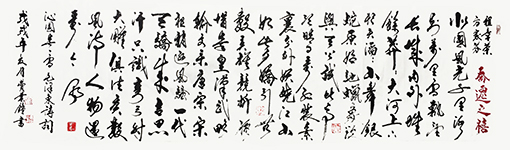 北國風光千里冰
封萬里雪飄望
長城内外唯
餘莽莽大河上下
頓失滔滔山舞銀
蛇原馳蠟象欲
與天公試比高
須晴日看紅裝素
裹分外妖嬈江山
如此多嬌引無
數英雄競折腰
惜秦皇漢武略
輸文采唐宗宋
祖稍遜風騷一代
天驕成吉思
汗只識彎弓射
大雕俱往矣數
風流人物還
看今朝
沁園春雪 毛澤東詩詞
戊戌年五月 書